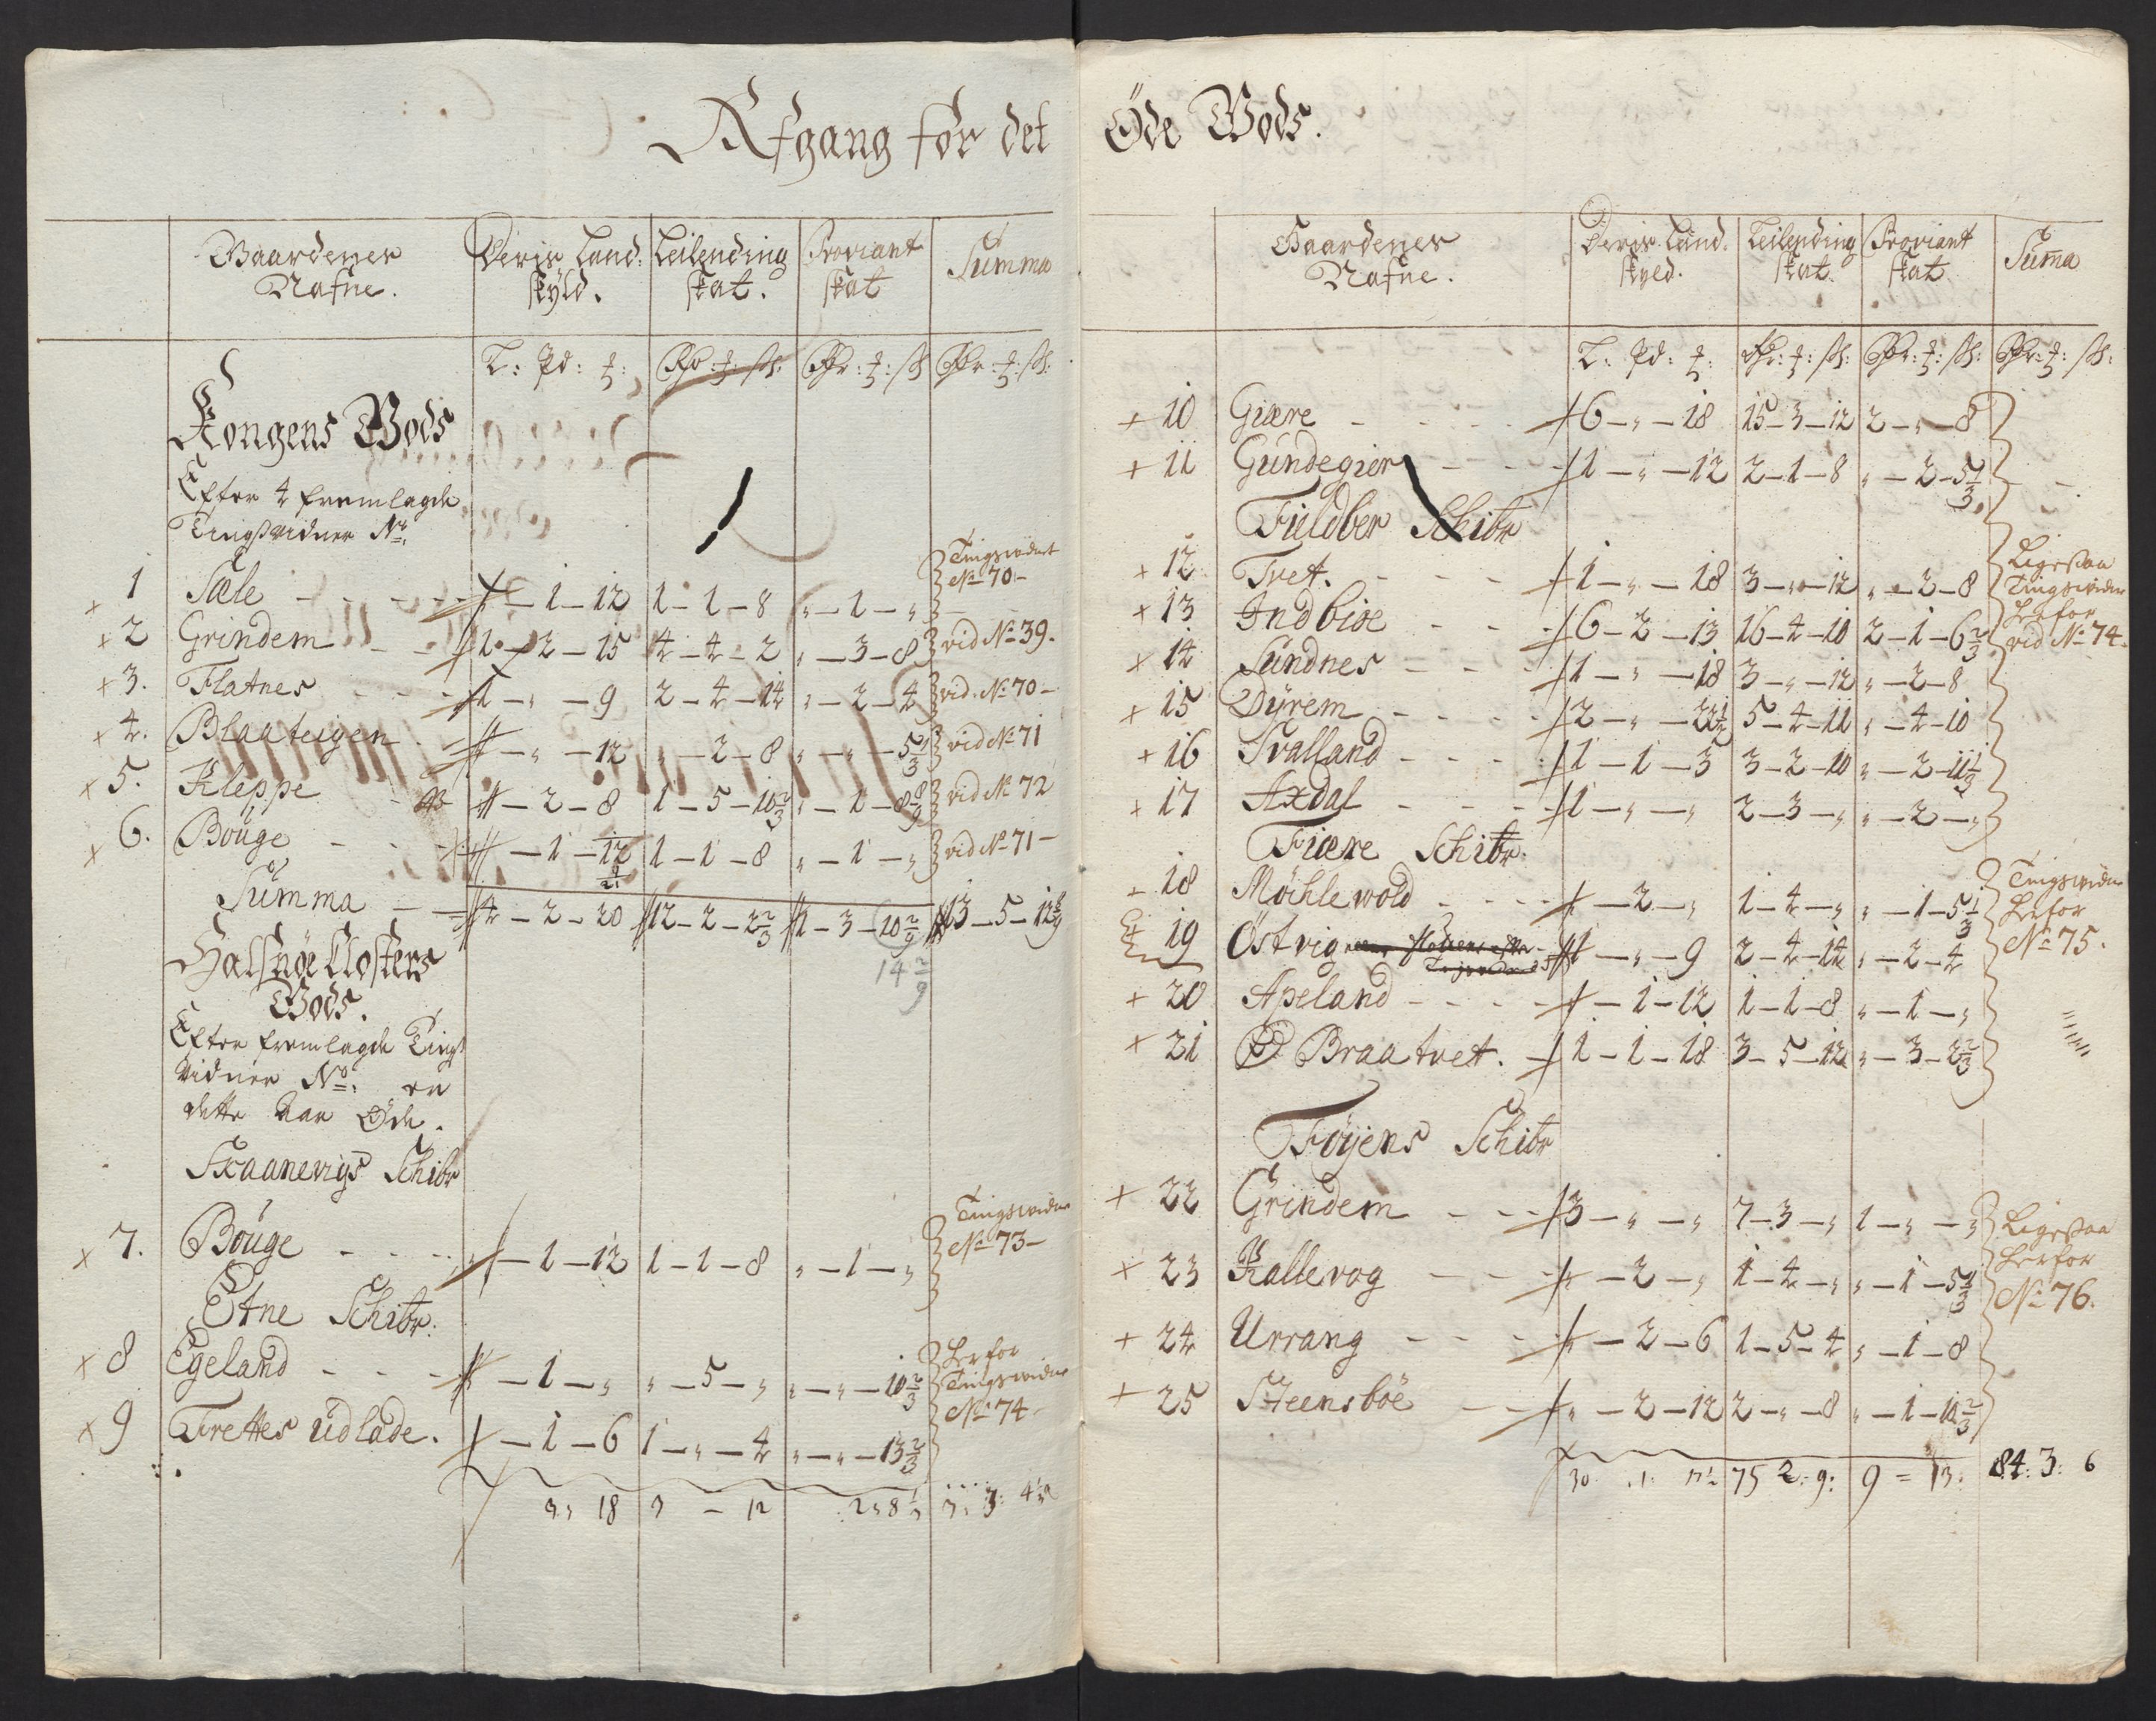 Afgang for det Öde Gods.
Gaardenes Nafne. Deris Land skyld. Leilending skat. Proviant skat Summa
L: Pd: Rdr: ß: Rdr: ß Rdr: ß:
Kongens Gods
Efter 4 fremlagde
Tingsvidner No.
Tingsvidnet
No 70 -
1 Sæle - 1 - 12 1 - 1 - 8 „ - 1 - „
2 Grindem 1 - 2 - 15 4 - 4 - 2 „ - 3 - 8 vid No 39.
3. Flatnes 1 - „ - 9 2 - 4 - 14 „ - 2 - 4 vid. No 70 -
4. Blaateigen - „ - 12 „ - 2 - 8 „ - „ - 5 1/3 vid No 71
5. Kleppe - 2 - 8 1 - 5 - 10 2/3 „ - 1 - 8 8/9 vid No 72
6. Bouge - 1 - 12 1 - 1 - 8 „ - 1 - „ vid No 71 -
Summa 4 - 2 - 20 12 - 2 - 2 2/3 1 - 3 - 10 2/9 13 - 5 - 12 8/9
14 2/9
Halsnöe Closters
Gods.
Efter fremlagde Tings
Vidner No: er
dette har Øde.
Skaanevigs Schibr
Tingsvidne
No 73 -
7. Bouge - 1 - 12 1 - 1 - 8 „ - 1 - „
Etne Schibr.
8 Egeland - 1 - „ „ - 5 - „ „ - „ - 10 2/3
Herfor
Tingsvidne
No 74 -
9 Frettes Udlade. - 1 - 6 1 - „ - 4 „ - „ - 13 2/3
Gaardenes Nafne. Deris Land skyld. Leilending skat. Proviant skat Suma
L: Pd: Rdr: ß: Rdr: ß: Rdr: ß:
10 Giære 6 - „ - 18 15 - 3 - 12 2 - „ - 8
11 Gundegier 1 - „ - 12 2 - 1 - 8 „ - 2 - 5 1/3
Fieldber Schibr
12 Tvet. 1 - „ - 18 3 - „ - 12 „ - 2 - 8
Ligesaa
Tingsvidne
Herfor
vid No 74 -
13 Indbiøe 6 - 2 - 13 16 - 4 - 10 2 - 1 - 6 2/3
14 Sundnes 1 - „ - 18 3 - „ - 12 „ - 2 - 8
15 Dyrem 2 - „ - 22 1/2 5 - 4 - 11 „ - 4 - 10
16 Svalland 1 - 1 - 3 3 - 2 - 10 „ - 2 - 11 1/3
17 Axdal 1 - „ - „ 2 - 3 - „ „ - 2 - „
Fiære Schibr.
18 Möchlevold - 2 - „ 1 - 4 - „ „ - 1 - 5 1/3
Tingsvidne
Herfor
No 75.
19 Östvig 1 - „ - 9 2 - 4 - 14 „ - 2 - 4
20 Apeland - 1 - 12 1 - 1 - 8 „ - 1 - „
21 Braatvet. 1 - 1 - 18 3 - 5 - 12 „ - 3 - 2 2/3
Föyens Schibr
22 Grindem 3 - „ - „ 7 - 3 - „ 1 - „ - „
Ligesaa
Herfor
No 76.
23 Kallevog - 2 - „ 1 - 4 - „ „ - 1 - 5 1/3
24 Urrang - 2 - 6 1 - 5 - 4 „ - 1 - 8
25 Steensböe „ - 2 - 12 2 - „ - 8 „ - 1 - 10 2/3
75 2: 9: 9 = 13: 84: 3: 6